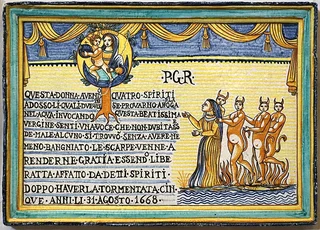 P.G.R.
QVESTA DONNA AVENDO QVATRO SPIRITI
ADOSSO LI QVALI
NELAQVA INVOCANDO QVESTA BEATISSIMA
VERGINE SENTI VNA VOCE CHE NON DVBITASSE
DE MALE ALCVNO SI TROVÒ SENZA AVERE NE
MENO BANGNIATO LE SCARPE VENNE A
RENDERNE GRATIA ESSEND LIBE
RATTA AFFATTO DA DETTI SPIRITI
DOPPO HAVERLA TORMENTATA CIN
QVE ANNI LI 31 AGOSTO 1668